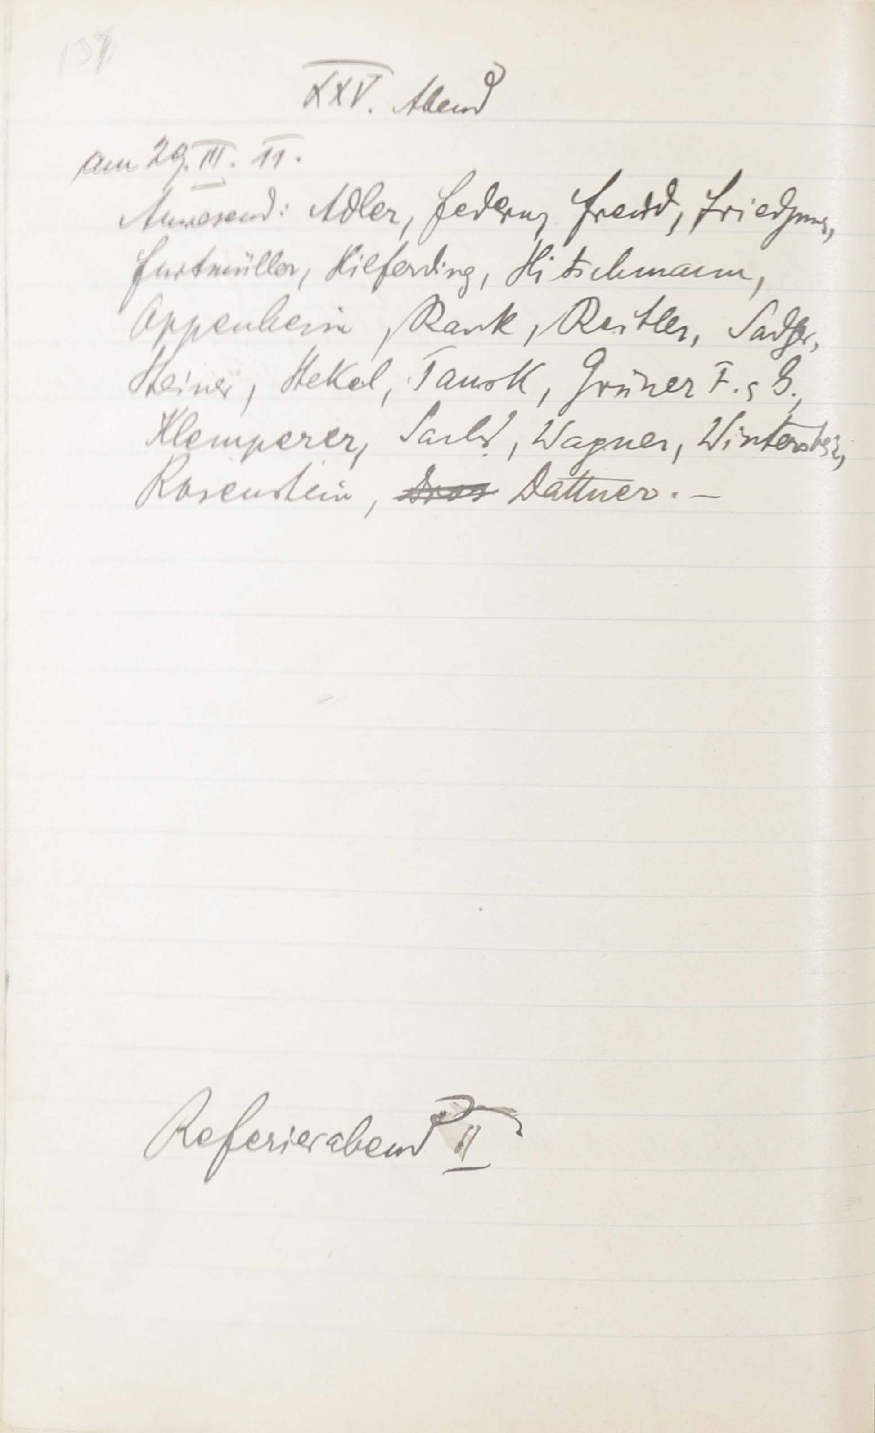 XXV. Abend
am 29. III. 11.
Anwesend: Adler, Federn, Freud, Friedjung,
Furtmüller, Hilferding, Hitschmann,
Oppenheim, Rank, Reitler, Sadger,
Steiner, Stekel, Tausk, Grüner F. u. G.,
Klemperer, Sachs, Wagner, Winterstein,
Rosenstein, Dattner. —
Referierabend II